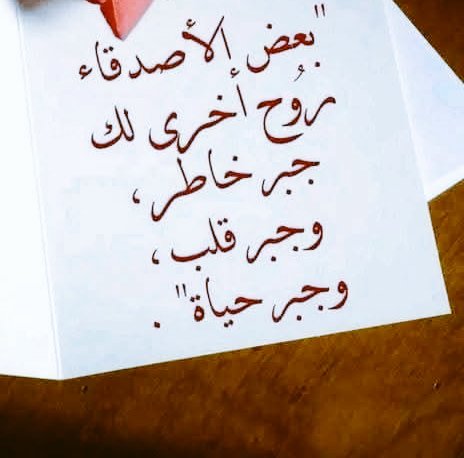 "بعض الأصدقاء
رُوح أخرى لك
جبر خاطر،
وجبر قلب،
وجبر حياة".